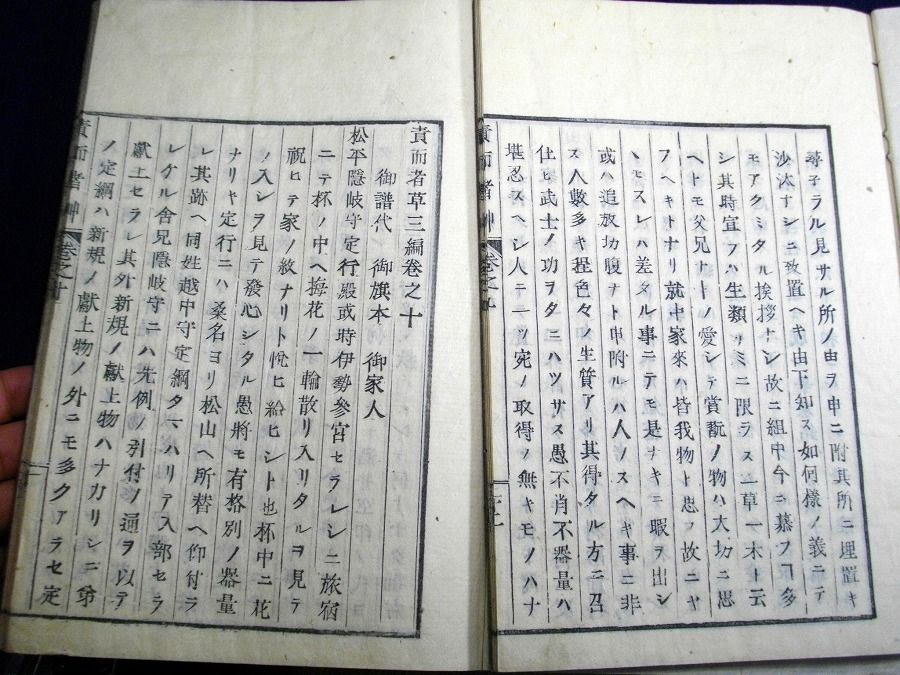 尋子ラル見サル所ノ由ヲ申ニ附其所ニ埋置キ
沙汰ナシニ致置ヘキ由下知ス如何樣ノ義ニテ
モアクミタル挨拶ナシ故ニ組中今ニ慕フヿ多
シ其時宜フハ生類ノミニ限ラス一草一木ト云
ヘトモ父兄ナトノ愛シテ賞翫ノ物ハ大切ニ思
フヘキトナリ就中家來ハ皆我物ト思フ故ニヤ
トモスレハ差タル事ニテモ是ナキニ暇ヲ出シ
或ハ追放切腹ナト申附ルハ人ノスヘキ事ニ非
ス人數多キ程色々ノ生質アリ其得タル方ニ召
仕ヒ武士ノ功ヲタニハツサス愚不肖不器量ハ
堪忍スヘシ人ニ一ツ宛ノ取得ノ無キモノハナ
責而者艸 卷之九
責而者草三編卷之十
御譜代 御旗本 御家人
松平隱岐守定行殿或時伊勢參宮セラレシニ旅宿
ニテ杯ノ中ヘ梅花ノ一輪散リ入リタルヲ見テ
祝ヒテ家ノ紋ナリト悅ヒ給ヒシト也杯中ニ花
ノ入シヲ見テ發心シタル愚將モ有格別ノ器量
ナリキ定行ニハ桑名ヨリ松山ヘ所替ヘ仰付ラ
レ其跡ヘ同姓越中守定綱タマハリテ入部セラ
レケル舍兄隱岐守ニハ先例ノ引付ノ通ヲ以テ
獻上セラレ其外新規ノ獻上物ハナカリシニ弟
ノ定綱ハ新規ノ獻上物ノ外ニモ多クアラセ定
責而者艸 卷之十